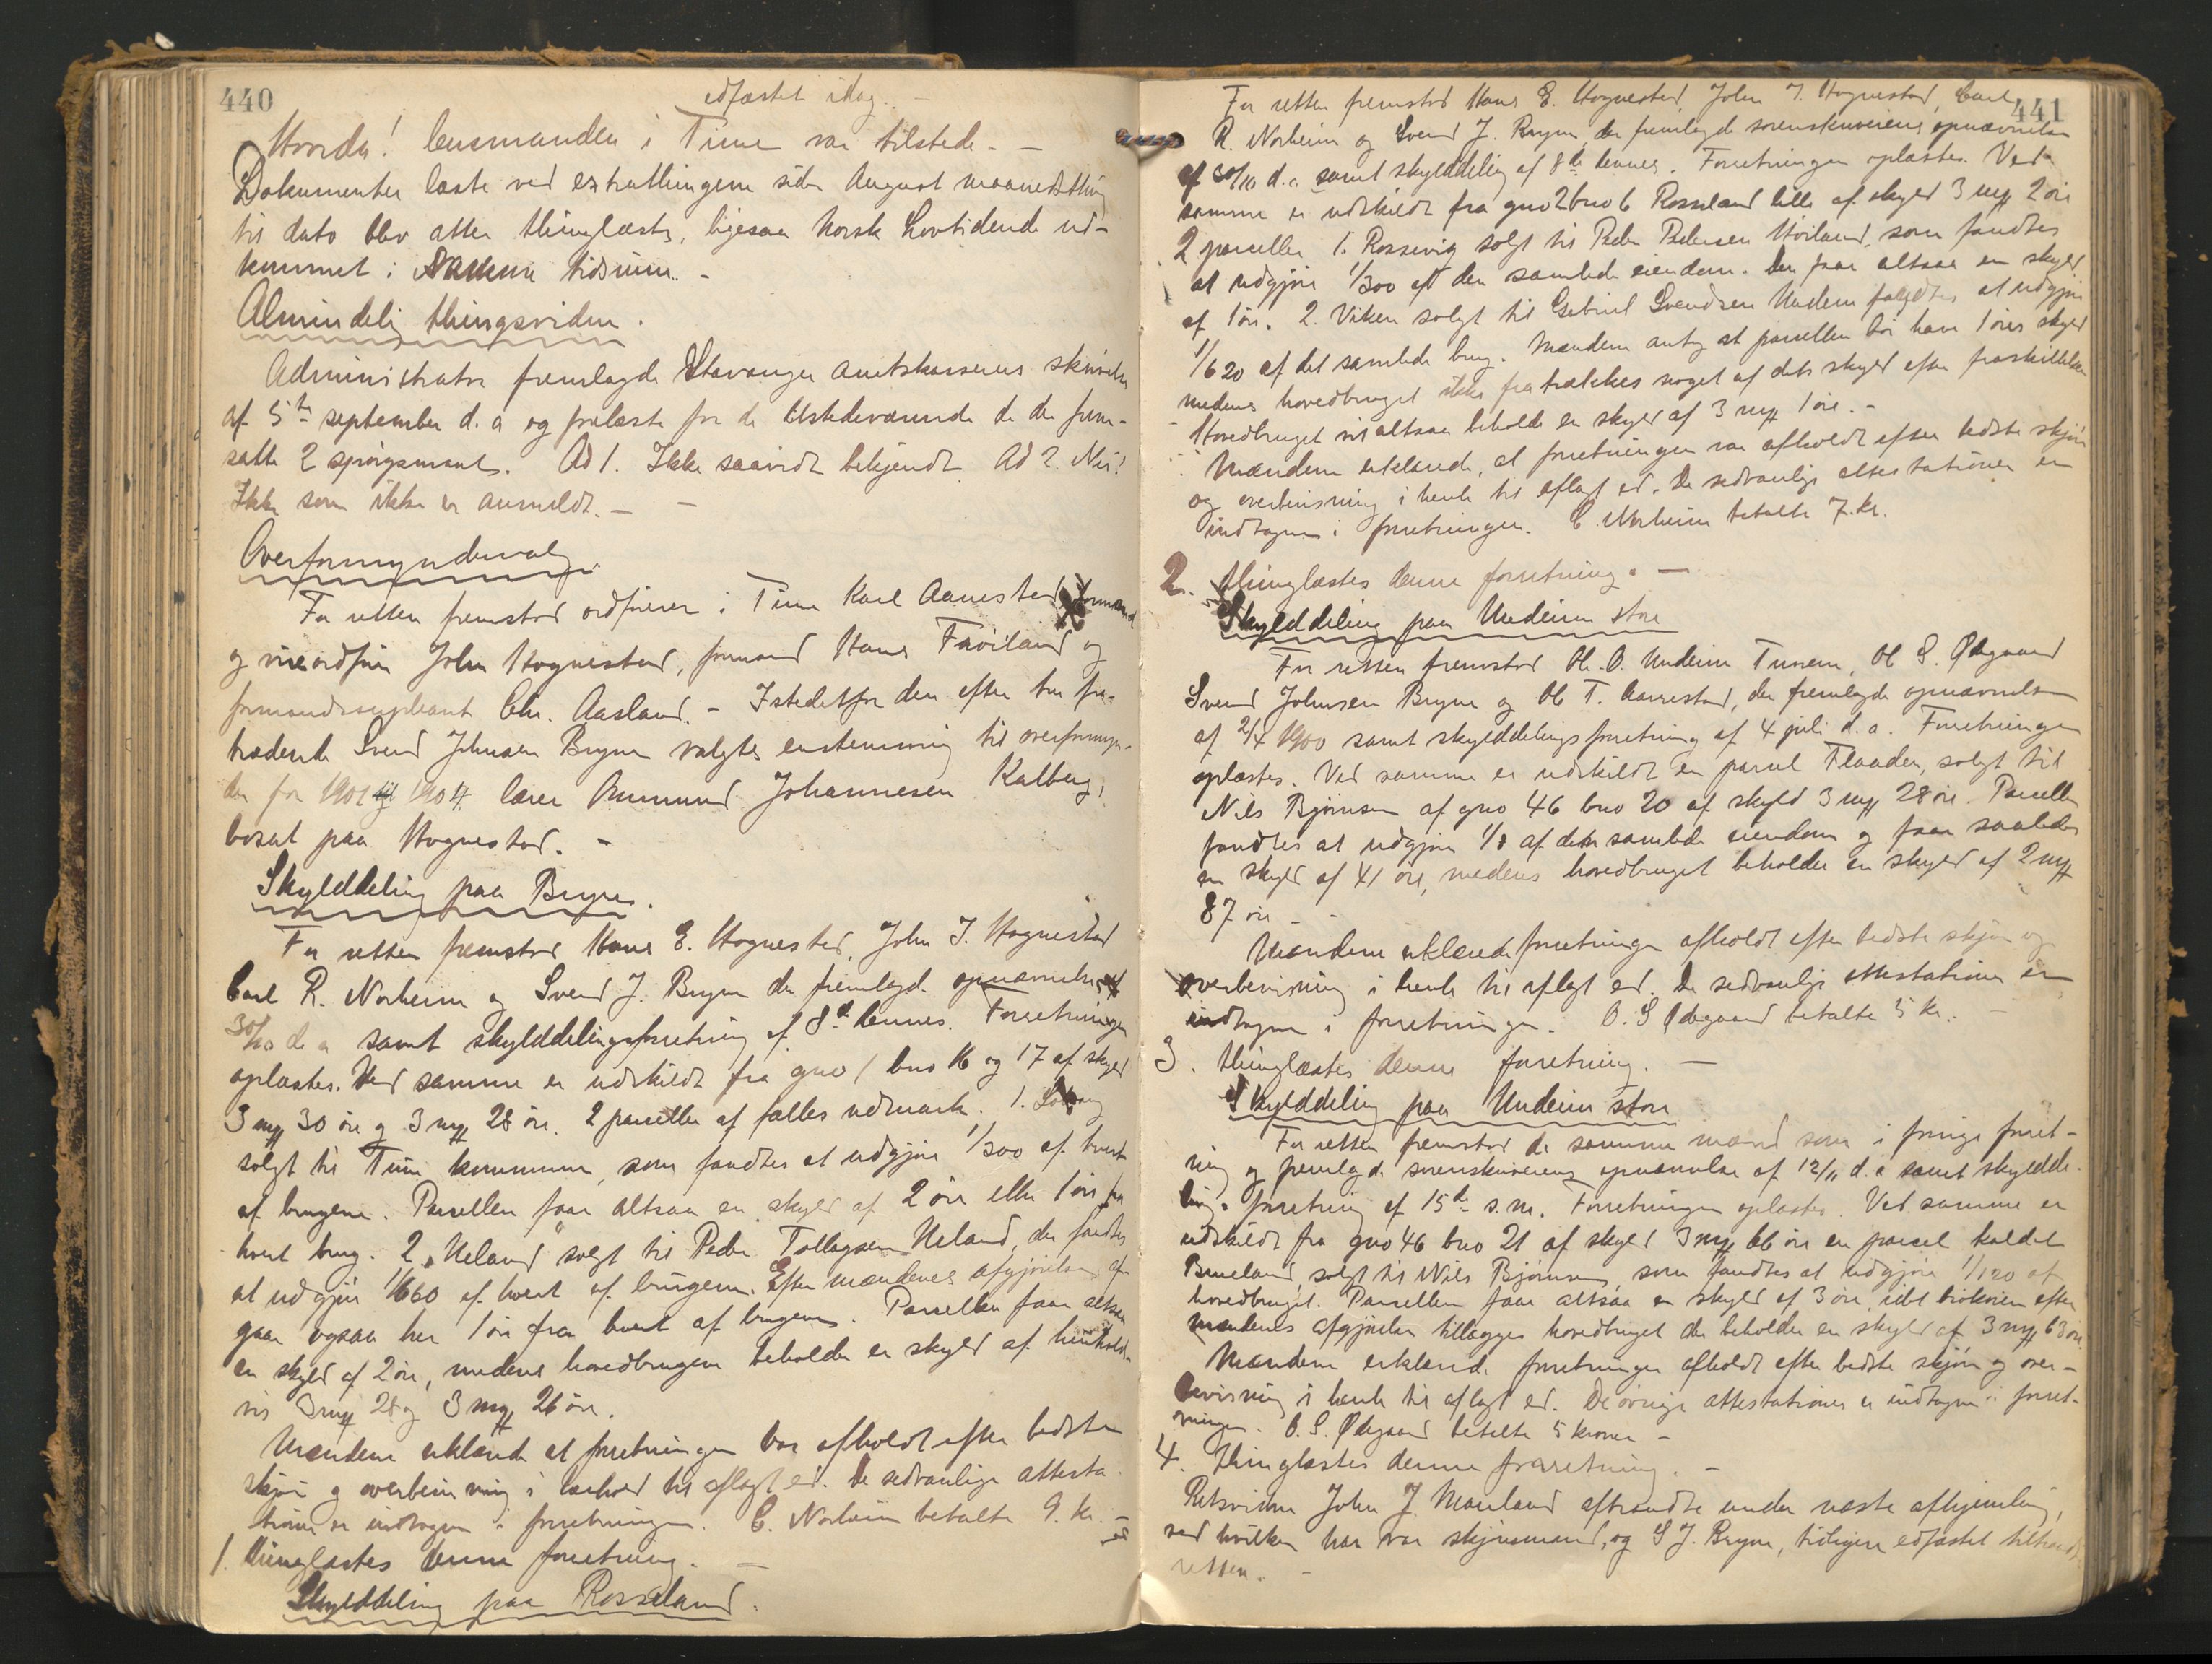 440
edfæstet idag. -
Hvorda! lensmanden i Time var tilstede. -
Dokumenter læste ved extrathingene siden August maanedsthing
til dato blev atter thinglæste, ligesaa Norsk Lovtidende ud-
kommet i samme tidsrum. -
Almindelig thingsvidne.
Administrator fremlagde Stavanger amtskasserers skrivelse
af 5te september d. a og forelæste for de tilstedeværende de der frem-
satte 2 spørgsmaal. Ad 1. Ikke saavidt bekjendt. Ad 2. Nei!
Ikke som ikke er anmeldt. -
Overformyndervalg.
For retten fremstod ordfører i Time Karl Aanestad formand
og viceordfører John Hognestad, formand Hans Frøiland og
formandssupleant Chr. Aasland. - Istedetfor den efter tur fra-
trædende Svend Johnsen Bryne valgtes enstemmig til overformyn-
der for 1901 til 1904 lærer Ommund Johannesen Kalberg,
bosat paa Hognestad. -
Skylddeling paa Bryne.
For retten fremstod Hans E. Hognestad, John J. Hognestad
Carl R. Norheim og Svend J. Bryne der fremlagde opnævnelse af
30/10 d. a samt skylddelingsforretning af 8de dennes. Forretningen
oplæstes. Ved samme er udskildt fra gno 1 bno 16 og 17 af skyld
3 mk 30 øre og 3 mk 28 øre. 2 parseller af fælles udmark. 1.
solgt til Time kommune, som fandtes at udgjøre 1/300 af hvert
af brugene. Parsellen faar altsaa en skyld af 2 øre eller 1 øre fra
hvert brug. 2. "Ueland" solgt til Peder Tollagsen Ueland, der fandtes
at udgjøre 1/660 af hvert af brugene. Efter mændenes afgjørelse af-
gaar ogsaa her 1 øre fra hvert af brugene. Parsellen faar altsaa
en skyld af 2 øre, medens hovedbrugene beholder en skyld af henholds-
vis 3 mk 28 og 3 mk 26 øre.
Mændene erklærede at forretningen var afholdt efter bedste
skjøn og overbevisning i henhold til aflagt ed. De sedvanlige attesta-
tioner er indtagne i forretningen. C. Norheim betalte 9. kr. -
1. thinglæstes denne forretning. -
Skylddeling paa Rosseland.
441
For retten fremstod Hans E. Hognestad, John J. Hognestad, Carl
R. Norheim og Svend J. Bryne, der fremlagde sorenskriverens opnævnelse
af 30/10 d. a. samt skylddeling af 8de dennes. Forretningen oplæstes. Ved
samme er udskildt fra gno 2 bno 6 Rosseland lille af skyld 3 mk 2 øre
2 parseller 1. Rossevig solgt til Peder Pedersen Høiland, som fandtes
at udgjøre 1/300 af den samlede eiendom. Den faar altsaa en skyld
af 1 øre. 2. Viken solgt til Gabriel Svendsen Undem fandtes at udgjøre
1/620 af det samlede brug. Mændene antog at parsellen bør have 1 øres skyld
medens hovedbruget ikke fratrækkes noget af dets skyld efter fraskillelsen
Hovedbruget vil altsaa beholde en skyld af 3 mk 1 øre. -
Mændene erklærede, at forretningen var afholdt efter bedste skjøn
og overbevisning i henh. til aflagt ed. De sedvanlige attestationer er
indtagne i forretningen. C. Norheim betalte 7. kr.
2. thinglæstes denne forretning. -
Skylddeling paa Undeim store
For retten fremstod Ole O. Undeim Tunem, Ol S. Ødegaard
Svend Johnsen Bryne og Ol T. Aarrestad, der fremlagde opnævnelse
af 2/4 1900 samt skylddelingsforretning af 4 juli d. a. Forretningen
oplæstes. Ved samme er udskildt en parsel Flaaden, solgt til
Nils Bjørnsen af gno 46 bno 20 af skyld 3 mk 28 øre. Parsellen
fandtes at udgjøre 1/8 af den samlede eiendom og faar saaledes
en skyld af 41 øre, medens hovedbruget beholder en skyld af 2 mk
87 øre -
Mændene erklærede forretningen afholdt efter bedste skjøn og
overbevisning i henh. til aflagt ed. De sedvanlige attestationer er
indtagne i forretningen. O. S Ødegaard betalte 5 kr. -
3. thinglæstes denne forretning. -
Skylddeling paa Undeim store
For retten fremstod de samme mænd som i forrige forret-
ning og fremlagde sorenskriverens opnævnelse af 12/11 d. a samt skylddel-
ings forretning af 15de s. m. Forretningen oplæstes. Ved samme er
udskildt fra gno 46 bno 21 af skyld 3 mk 66 øre en parsel kaldet
Brueland, solgt til Nils Bjørnsen, som fandtes at udgjøre 1/120 af
hovedbruget. Parsellen faar altsaa en skyld af 3 øre, idet brøkøren efter
mændenes afgjørelse tillægges hovedbruget der beholder en skyld af 3 mk 63 øre.
Mændene erklærede forretningen afholdt efter bedste skjøn og over-
bevisning i henh. til aflagt ed. De øvrige attestationer er indtagne i forret-
ningen. O. S. Ødegaard betalte 5 kroner -
4. Thinglæstes denne forretning. -
Retsvidne John J. Mauland aftraadte under næste afhjemling,
ved hvilken han var skjønsmand, og S J. Bryne, tidligere edfæstet tiltraadte
retten. -